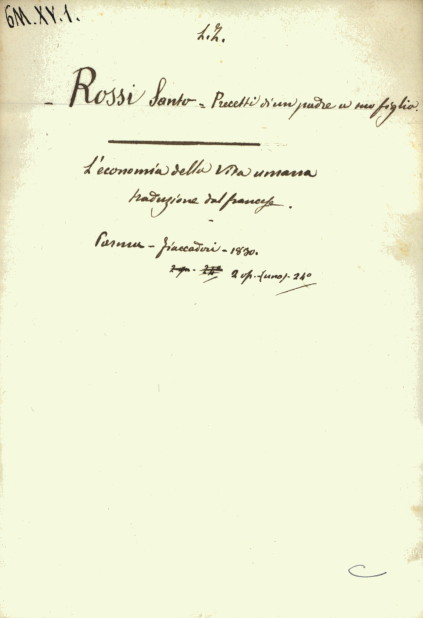 6M.XV.1.
L.Z.
- Rossi Santo = Precetti di un padre a suo figlio.
L'economia della Vita umana
traduzione dal francese.
Parma - Fiaccadori - 1830.
2 op. (uno). 24º
C